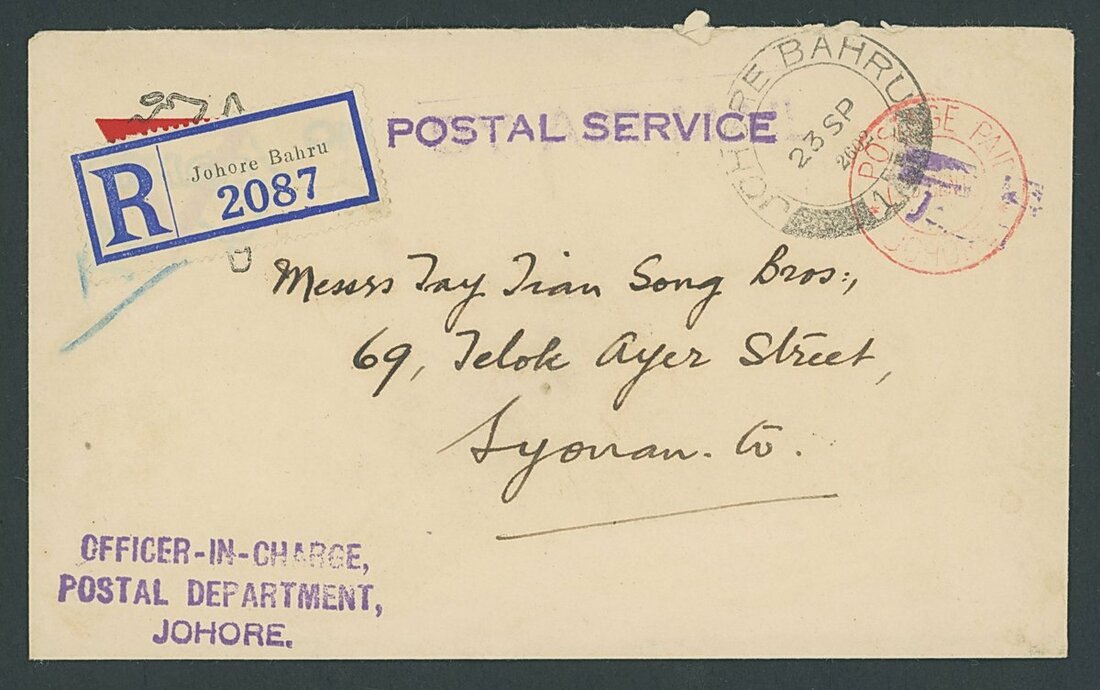 POSTAL SERVICE
R
Johore Bahru
2087
JOHORE BAHRU
23 SP
2602
POSTAGE PAID
JOHORE
Messrs Tay Tian Song Bros:,
69, Telok Ayer Street,
Syonan. to.
OFFICER-IN-CHARGE,
POSTAL DEPARTMENT,
JOHORE.